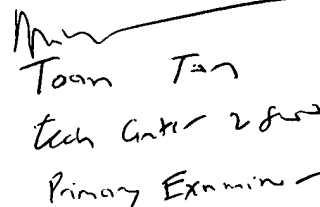 Toan Ton
tech Center 2800
Primary Examiner